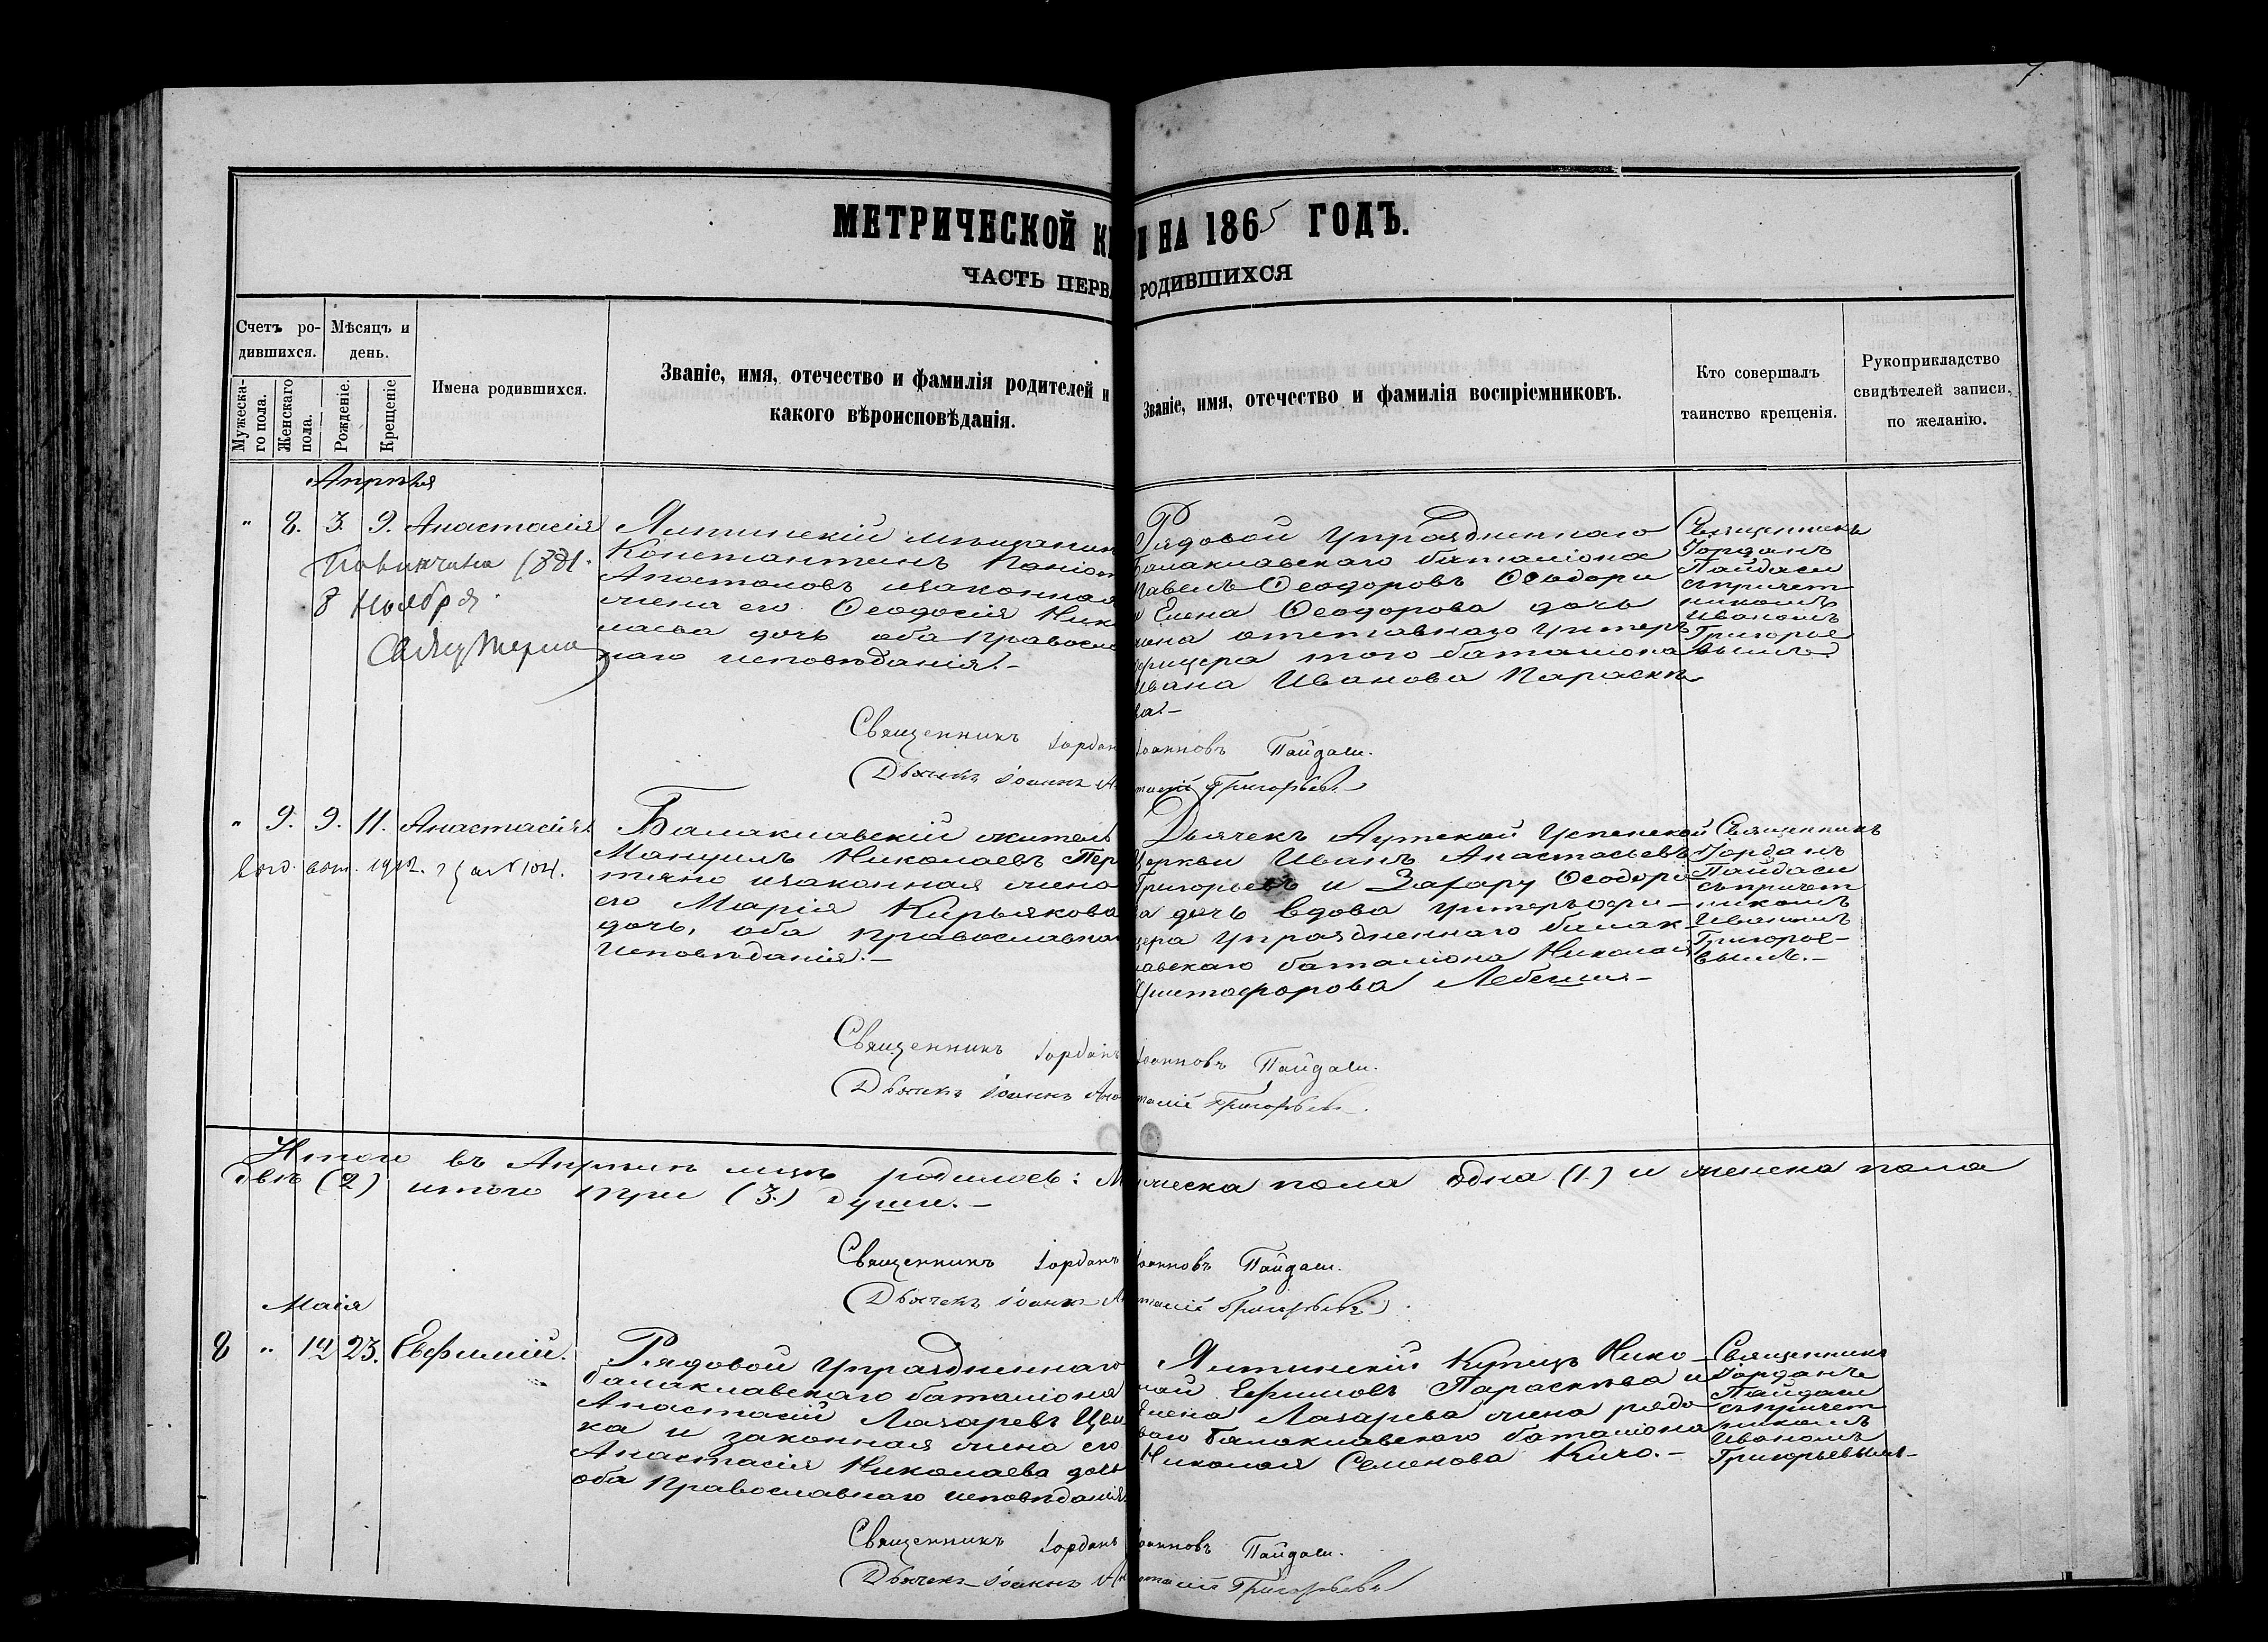 7.
МЕТРИЧЕСКОЙ КН И НА 1865 ГОДЪ.
ЧАСТЬ ПЕРВА РОДИВШИХСЯ
Счетъ ро-
дившихся.
Мужеска-
го пола.
Женскаго
пола.
Мѣсяцъ и
день.
Рожденіе.
Крещеніе
Имена родившихся.
Званіе, имя, отечество и фамилія родителей и
какого вѣроисповѣданія.
Званіе, имя, отечество и фамилія воспріемниковъ.
Кто совершалъ
таинство крещенія.
Рукоприкладство
свидѣтелей записи,
по желанію.
Апрѣля
" 8. 3. 9. Анастасія
8 Ноября
Ялтинскій мѣщанин
Константинъ Паніот
Апостоловъ изаконная
жена его Ѳеодосія Ник
лаева дочь оба правосл
наго исповѣданія.-
Рядовой Упраздненнаго
Балаклавскаго баталіона
Павелъ Ѳеодоровъ Ѳеодори
и Елена Ѳеодорова дочь
жена отставнаго Унтеръ
фицера того баталіона
Ивана Иванова Параскѣ
ва.-
Священникъ
Іорданъ
Пайдаси
съ причет
никомъ
Иваномъ
Григорье
вымъ.
Священникъ Іордан Іоанновъ Пайдаси.
Дьячекъ Іоаннъ А тасій Григорьевъ
" 9. 9. 11. Анастасія
Балаклавскій житель
Мануилъ Николаевъ Пер
тяно изаконная жена
его Марія Кирьякова
дочь, оба православна
исповѣданія.-
Дьячекъ Аутской Успенской
Церкви Иванъ Анастасьевъ
Григорьевъ и Зафару Ѳеодорі
ва дочь вдова Унтеръ офи-
цера Упраздненнаго балак-
лавскаго баталіона Николая
Христофорова
Священникъ
Іорданъ
Пайдаси
съ причет
никомъ
Иваномъ
Григорье-
вымъ.-
Священникъ Іорданъ Іоанновъ Пайдаси.
Дьячекъ Іоаннъ Ана тасій Григорьевъ.
Итого въ Апрѣлѣ мцѣ родилось: М жеска пола одна (1.) и женска пола
двѣ (2) итого три (3.) души.-
Священникъ Іорданъ Іоанновъ Пайдаси.
Дьячекъ Іоаннъ А тасій Григорьевъ.
Маія
8 " 14 23. Евфимій.
Рядовой Упраздненнаго
балаклавскаго баталіона
Анастасій Лазаревъ
ка и законная жена его
Анастасія Николаева дочь
оба Православнаго исповѣданія
Ялтинскій Купецъ Нико-
лай Ефимовъ Параскѣва и
Елена Лазарева жена рядо-
ваго Балаклавскаго баталіона
Николая Семенова Кичо.-
Священникъ
Іорданъ
Пайдаси
съ причет
никомъ
Иваномъ
Григорьевымъ-
Священникъ Іорданъ Іоанновъ Пайдаси.
Дьячекъ Іоаннъ Ан стасій Григорьевъ